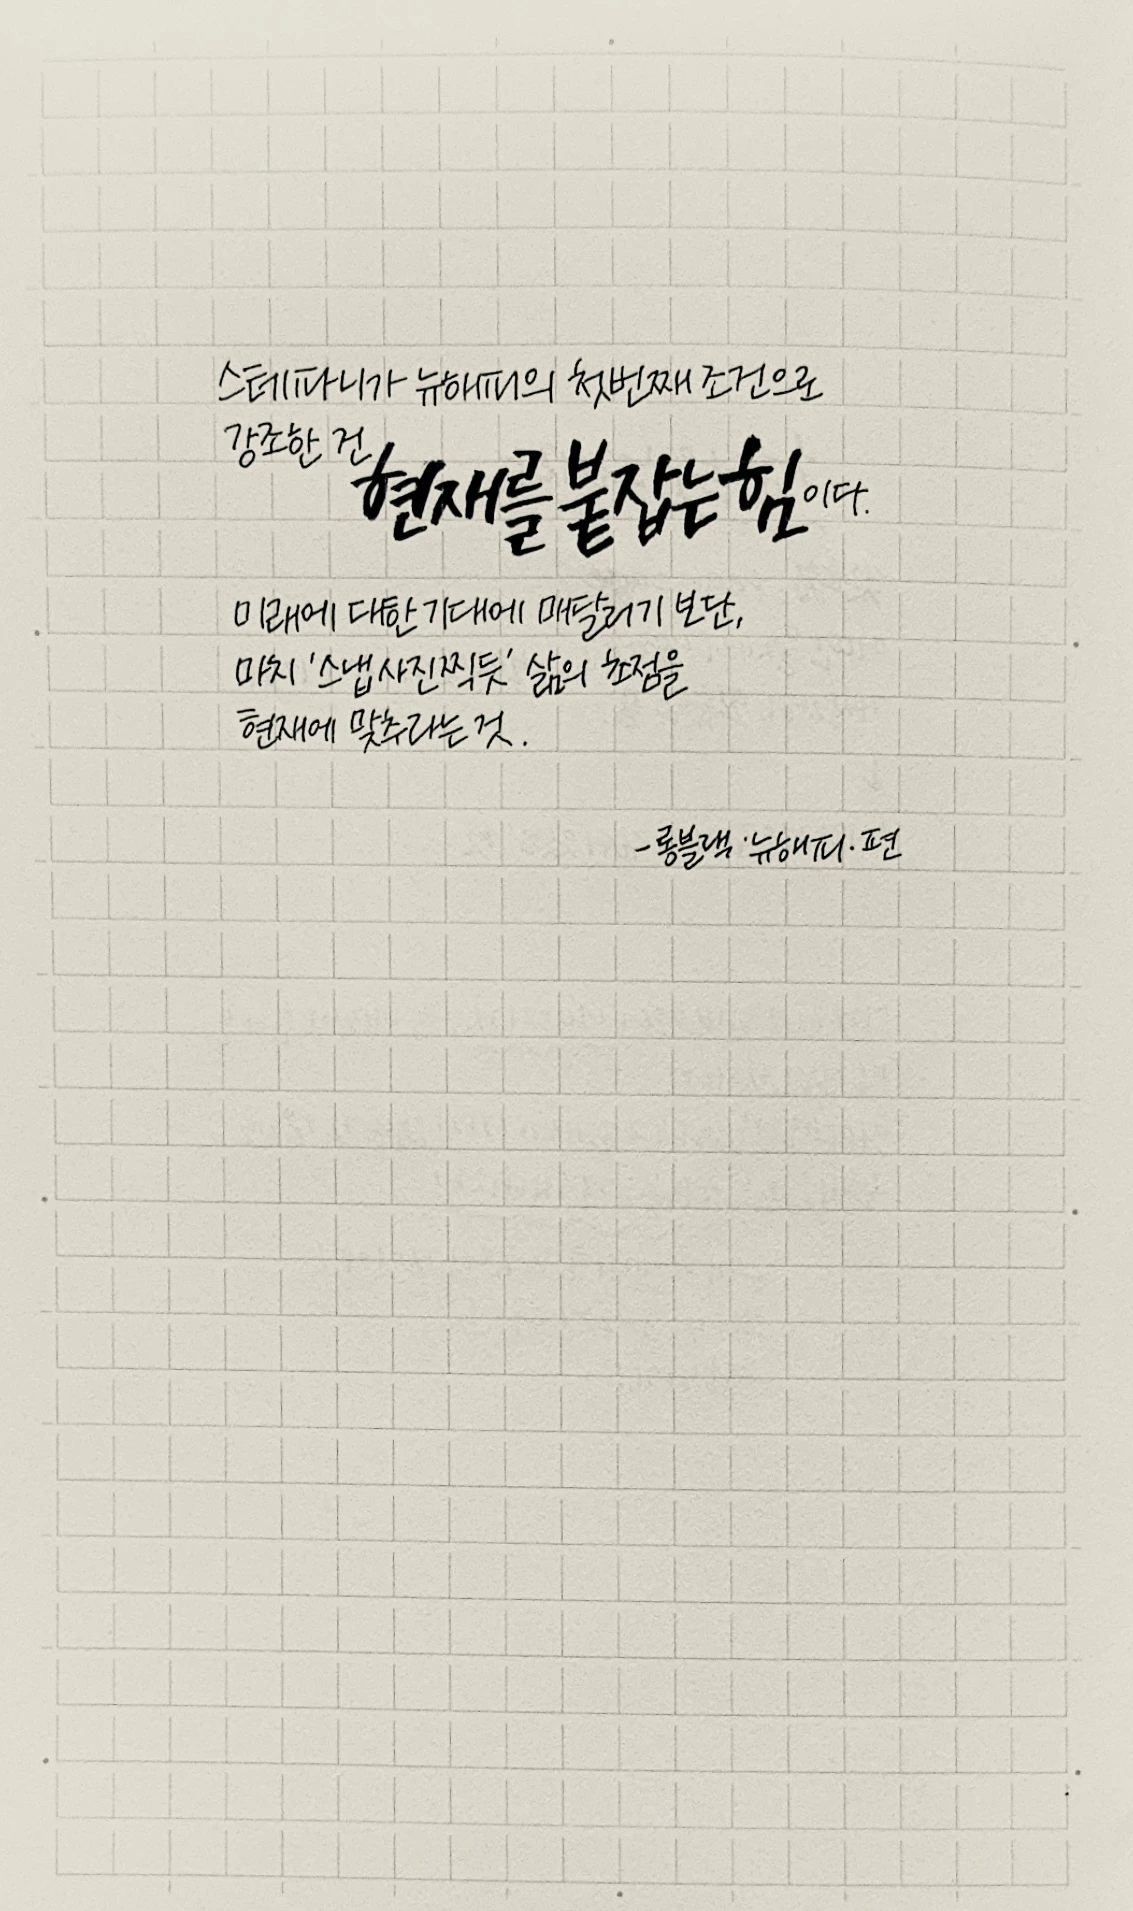 스테파니가 뉴해피의 첫번째 조건으로
강조한 건 현재를 붙잡는 힘이다.
미래에 대한 기대에 매달리기 보단,
마치 '스냅사진찍듯' 삶의 초점을
현재에 맞추라는 것.
- 롱블랙 · 뉴해피 · 편